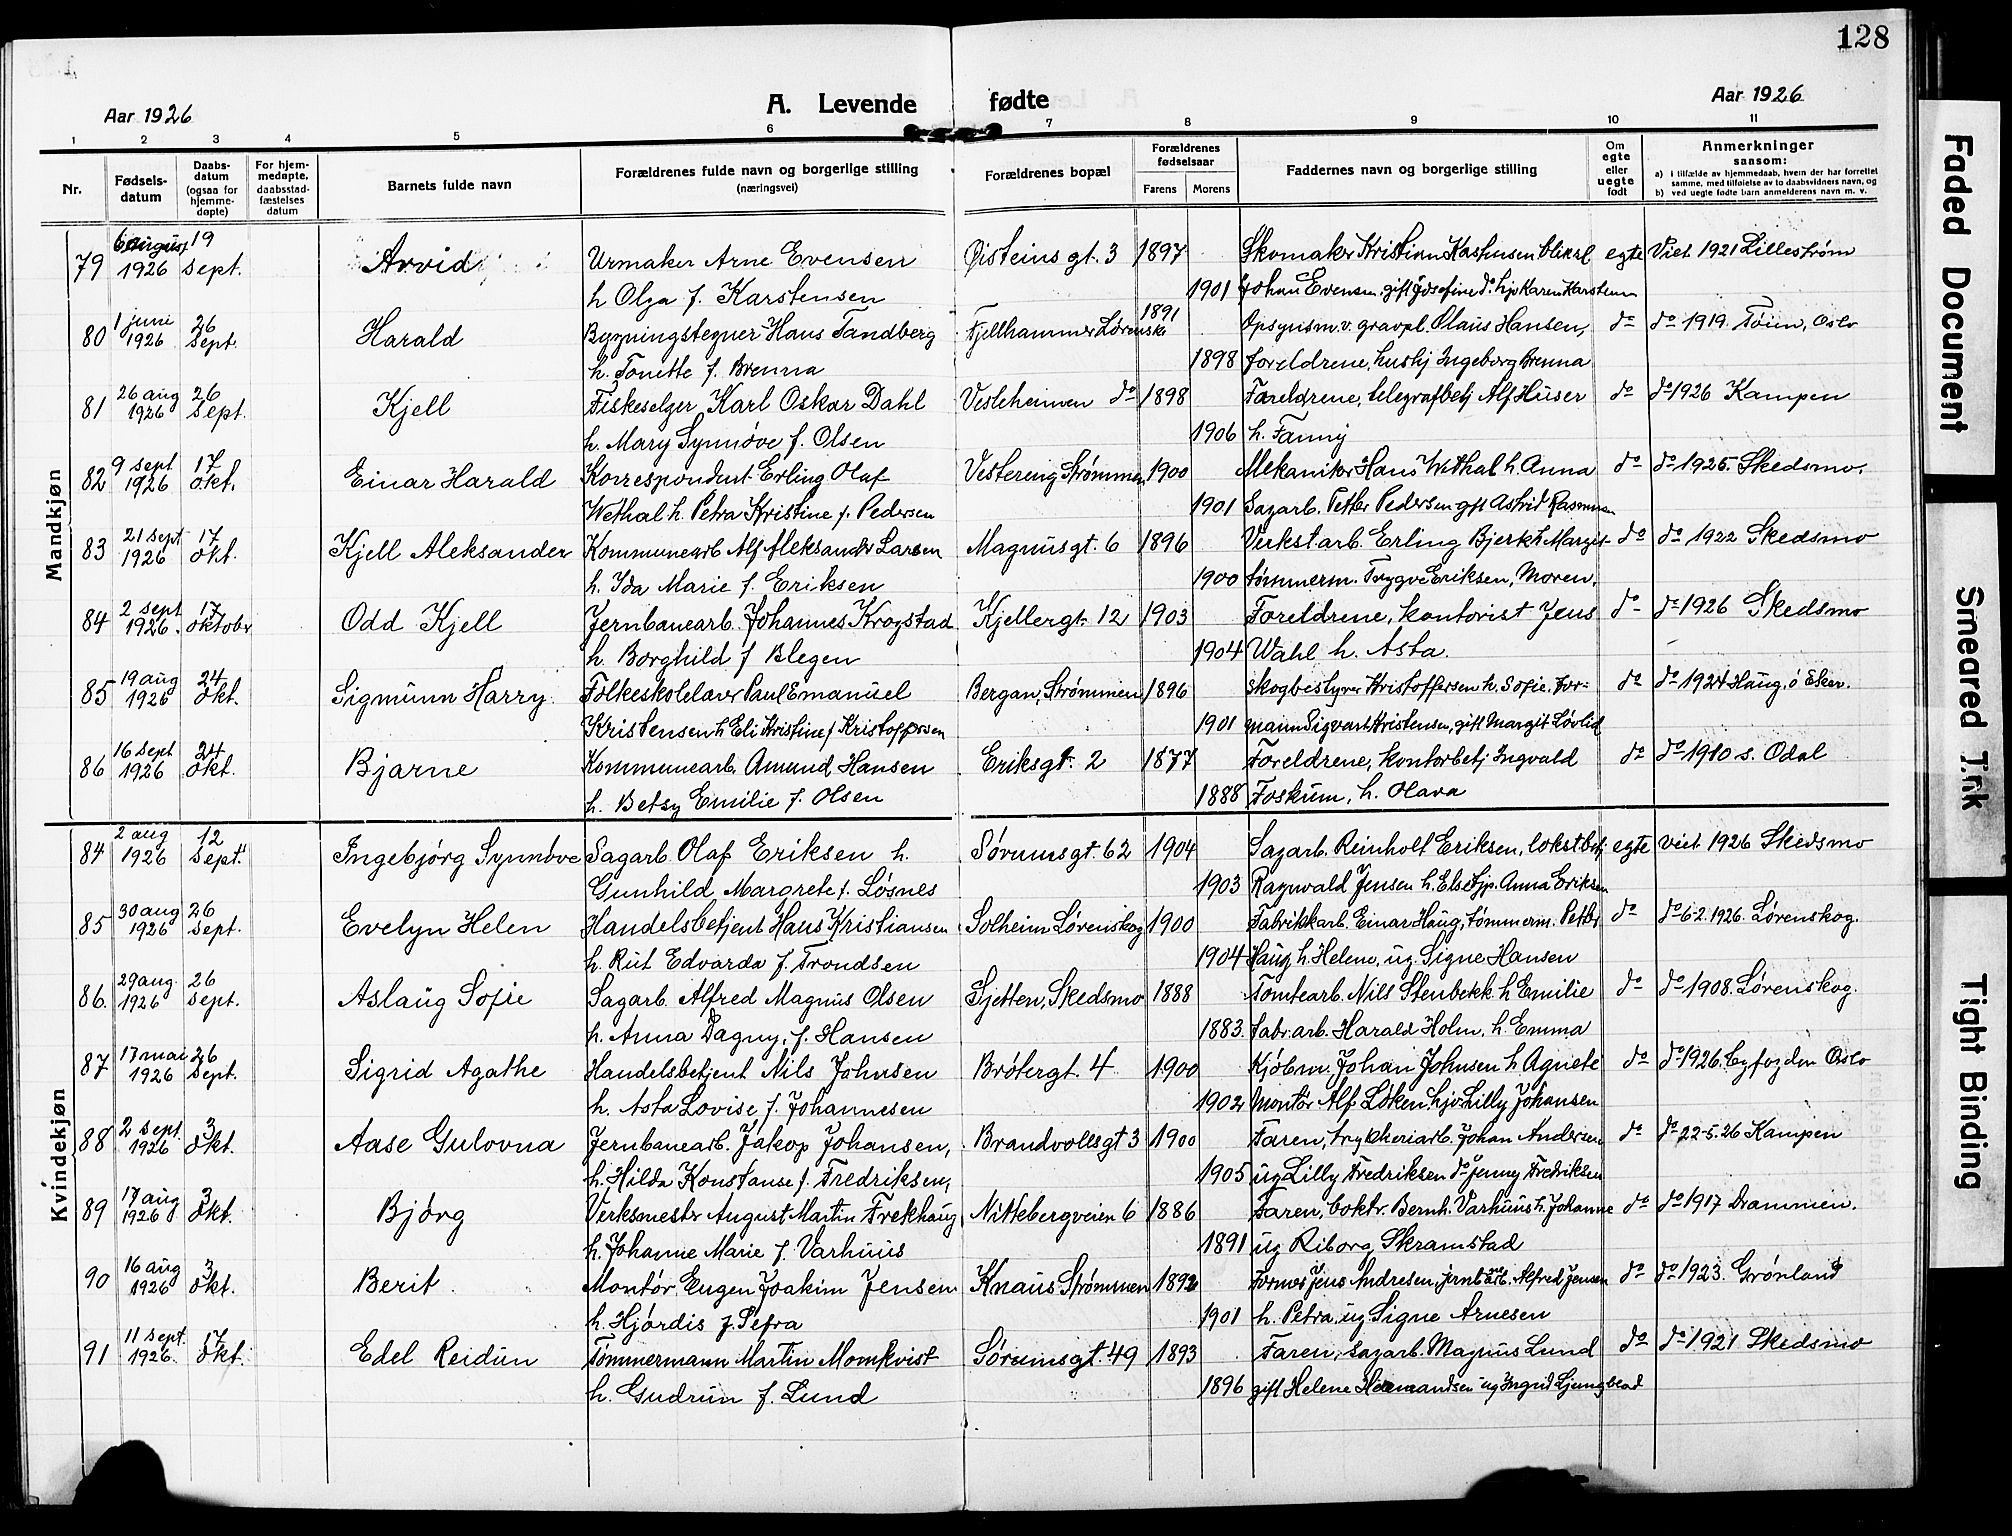 128
A. Levende fødte
Aar 1926
Aar 1926
1 2 3 4 5 6 7 8 9 10 11
Nr.
Fødsels-datum
Daabs-datum (ogsaa for hjemme-døpte)
For hjem-medøpte, daabsstad-fæstelses datum
Barnets fulde navn
Forældrenes fulde navn og borgerlige stilling (næringsvei)
Forældrenes bopæl
Forældrenes fødselsaar
Farens
Morens
Faddernes navn og borgerlige stilling
Om egte eller uegte født
Anmerkninger
saasom:
a) i tilfælde av hjemmedaab, hvem der har forrettet samme, med tilføielse av to daabsvidners navn, og
b) ved uegte fødte barn anmelderens navn m. v.
Mandkjøn
79 6 august 1926 19 sept. Arvid Urmaker Arne Evensen Øisteins gt. 3 1897 Skomaker Kristian egte Viet 1921 Lillestrøm
h Olga f. Karstensen 1901 Johan Evensen, gift Josefine do hjv Karen Karstensen
80 1 juni 1926 26 sept. Harald Bygningstegner Hans Tandberg Fjellhammer Lørensk 1891 Opsynsm. v. gravpl. Olaus Hansen, do do 1919. Tøien, Oslo
h. Tonette f. Brenna 1898 foreldrene, hushj Ingeborg Brenna
81 26 aug 1926 26 sept. Kjell Fiskeselger Karl Oskar Dahl Vesleheimen do 1898 Foreldrene, telegrafbetj Alf Huser do do 1926 Kampen
h. Mary Synnøve f. Olsen 1906 h. Fanny
82 9 sept 1926 17 okt. Einar Harald Korrespondent Erling Olaf Vestereng Strømmen 1900 Mekaniker Hans Wethal h. Anna do do 1925. Skedsmo.
Wethal h. Petra Kristine f. Pedersen 1901 Sagarb. Petter Pedersen gift Astrid Rasmussen
83 21 sept 1926 17 okt. Kjell Aleksander Kommunearb Alf Aleksander Larsen Magnusgt. 6 1896 Verkstarb. Erling Bjerk h Margit do do 1922 Skedsmo
h. Ida Marie f. Eriksen 1900 tømmerm. Trygve Eriksen, Moren.
84 2 sept 1926. 17 oktober Odd Kjell Jernbanearb. Johannes Krogstad Kjellergt. 12 1903 Foreldrene, kontorist Jens do do 1926 Skedsmo
h. Borghild f Blegen 1904 Wahl h. Asta.
85 19 aug 1926 24 okt. Sigmunn Harry Folkeskolelærer Paul Emanuel Bergan, Strømmen 1896 skogbestyrer Kristoffersen h. Sofie. For- do do 1924 Haug, ø Eker.
Kristensen h Eli Kristine f Kristoffersen 1901 mann Sigvart Kristensen, gift Margit Løvlid
86 16 sept 1926 24 okt. Bjarne Kommunearb. Amund Hansen Eriksgt. 2 1877 Foreldrene, kontorbetj Ingvald do do 1910 s. Odal
h. Betsy Emilie f. Olsen 1888 Foskum, h. Olava
Kvindekjøn
84 2 aug 1926 12 sept. Ingebjørg Synnøve Sagarb. Olaf Eriksen h. Sørumsgt. 62 1904 Sagarb. Reinholt Eriksen, lokstbetj egte viet 1926 Skedsmo
Gunhild Margrete f. Løsnes 1903 Ragnvald Jensen h. Else, Anna Eriksen
85 30 aug 1926 26 sept. Evelyn Helen Handelsbetjent Hans Kristiansen Solheim Lørenskog 1900 Fabrikkarb. Einar Haug, tømmerm. Petter do do 6-2. 1926. Lørenskog.
h. Rut Edvarda f. Trondsen 1904 Haug h. Helene, ug. Signe Hansen
86. 29 aug. 1926 26 sept. Aslaug Sofie Sagarb. Alfred Magnus Olsen Sjetten, Skedsmo 1888 Tomtearb. Nils Stenbekk h Emilie do do 1908. Lørenskog.
h. Anna Dagny, f. Hansen 1883. fabr. arb. Harald Holm, h. Emma
87 17 mai 1926 26 sept. Sigrid Agathe Handelsbetjent Nils Johnsen Brøtergt. 4 1900 Kjøbm. Johan Johnsen h Agnete do do 1926. byfogden Oslo
h. Asta Lovise f. Johannesen 1902 Montør Alf Løken, hjv. Lilly Johansen
88 2 sept. 1926 3 okt. Aase Gulovna Jernbanearb. Jakop Johansen, Brandvollsgt 3 1900 Faren, trykkeriarb. Johan Andersen do do 22-5. 26 Kampen
h. Hilda Konstanse f. Fredriksen, 1905 ug Lilly Fredriksen do Jenny Fredriksen
89 17 aug 1926 3 okt. Bjørg Verksmester August Martin Frekhaug Nittebergveien 6 1886 Faren, boktr. Bernh. Varhuus h. Johanne do do 1917 Drammen.
h. Johanne Marie f. Varhuus 1891 ug Riborg Skramstad
90 16 aug 1926 3 okt. Berit. Montør Eugen Joakim Jensen Knaus Strømmen 1892 Former Jens Andresen, jernb arb. Alfred Jensen do do 1923. Grønland
h. Hjørdis f. Sefra 1901 h. Petra, ug. Signe Arnesen
91 11 sept. 1926. 17 okt. Edel Reidun Tømmermann Martin Momkvist Sørumsgt. 49 1893 Faren, sagarb. Magnus Lund do do 1921 Skedsmo
h. Gudrun f. Lund 1896 gift Helene Hermandsen ug Ingrid Ljungblad
Faded Document
Smeared Ink
Tight Binding